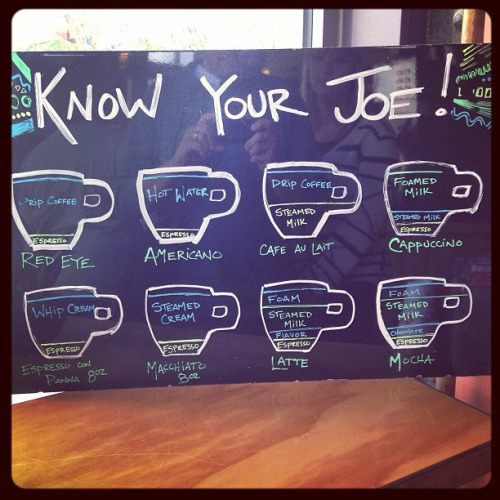 KNOW YOUR JOE!
DRIP COFFEE
ESPRESSO
RED EYE
HOT WATER
ESPRESSO
AMERICANO
DRIP COFFEE
STEAMED
MILK
CAFE AU LAIT
FOAMED
MILK
STEAMED MILK
ESPRESSO
CAPPUCCINO
WHIP CREAM
ESPRESSO
ESPRESSO CON
PANNA 8OZ
STEAMED
CREAM
ESPRESSO
MACCHIATO
8OZ
FOAM
STEAMED
MILK
FLAVOR
ESPRESSO
LATTE
FOAM
STEAMED
MILK
CHOCOLATE
ESPRESSO
MOCHA